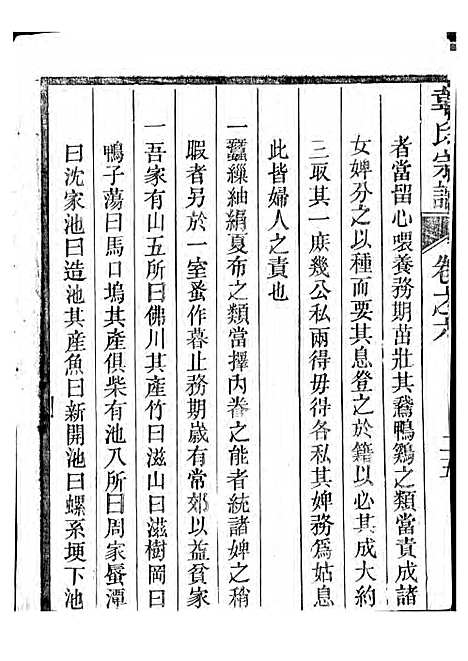 章氏宗譜
卷之六
二五
者當留心喂養務期茁壯其鵞鴨鷄之類當責成諸
女婢分之以種而要其息登之於籍以必其成大約
三取其一庶幾公私兩得毋得各私其婢務爲姑息
此皆婦人之責也
一蠶繅紬絹夏布之類當擇內眷之能者統諸婢之稍
暇者另於一室蚤作暮止務期歲有常郊以益貧家
一吾家有山五所曰佛川其產竹曰滋山曰滋樹岡曰
鴨子蕩曰馬口塢其產俱柴有池八所曰周家蜃潭
曰沈家池曰造池其產魚曰新開池曰螺系埂下池